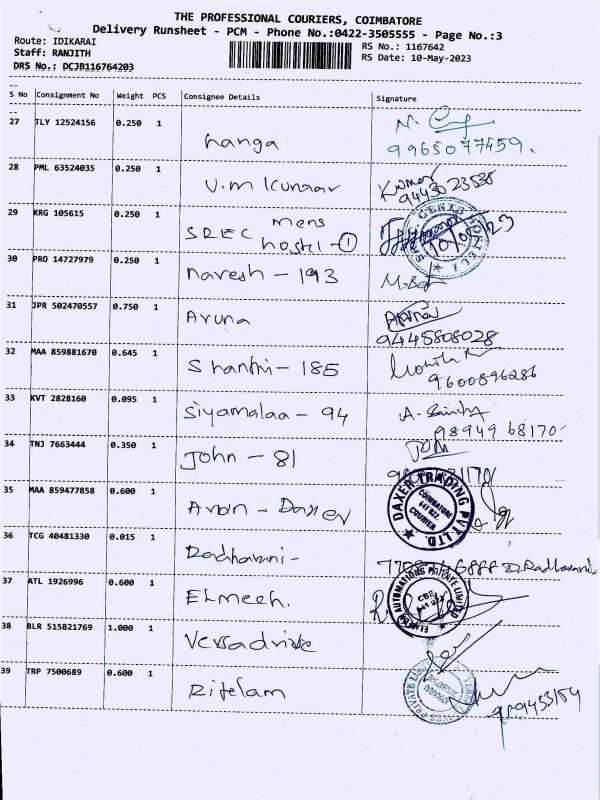 THE PROFESSIONAL COURIERS, COIMBATORE
Delivery Runsheet - PCM - Phone No.:0422-3505555 - Page No.:3
Route: IDIKARAI
RS No.: 1167642
Staff: RANJITH
RS Date: 10-May-2023
DRS No.: DCJB116764203
S No Consignment No Weight PCS Consignee Details Signature
27 TLY 12524156 0.250 1
Langa
9965077459.
28 PML 63524035 0.250 1
V.M Kumaar
Kumar
9443023535
29 KRG 105615 0.250 1
SREC mens
hostel - 1
GENTS HOSTEL
30 PRO 14727979 0.250 1
Naresh - 193
31 JPR 502470557 0.750 1
Aruna
9445808028
32 MAA 859881670 0.645 1
Shanthi - 185
9600896286
33 KVT 2828160 0.095 1
Siyamalaa - 94
98949 68170
34 TNJ 7663444 0.350 1
John - 81
35 MAA 859477858 0.600 1
Arun - Daxer
DAXER TRADING PVT.LTD.
COIMBATORE
641 022.
COURIER
36 TCG 40481330 0.015 1
Radharani -
D.Radharani
37 ATL 1926996 0.600 1
ELmech.
AUTOMATIONS PRIVATE LIMITED
CBE
38 BLR 515821769 1.000 1
Versadrive
39 TRP 7500689 0.600 1
Ritelam